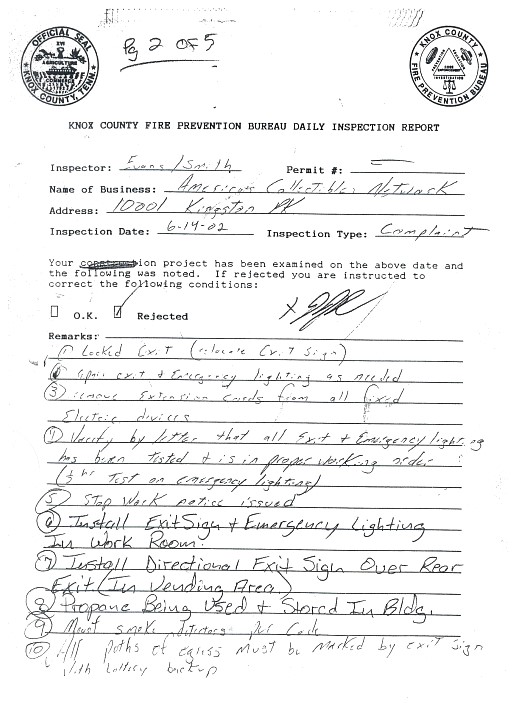 OFFICIAL SEAL
XVI
AGRICULTURE
COMMERCE
KNOX COUNTY, TENN.
Pg 2 of 5
KNOX COUNTY
FIRE PREVENTION BUREAU
INVESTIGATION
KNOX COUNTY FIRE PREVENTION BUREAU DAILY INSPECTION REPORT
Inspector: Evans/Smith Permit #: —
Name of Business: Americas Collectibles Network
Address: 10001 Kingston PK
Inspection Date: 6-14-02 Inspection Type: Complaint
Your construction project has been examined on the above date and
the following was noted. If rejected you are instructed to
correct the following conditions:
O.K. Rejected X
Remarks:
1 Locked Exit (relocate Exit Sign)
exit & Emergency lighting as needed
3 remove Extension cords from all fixed
Electric devices
4 Verify by letter that all Exit & Emergency lighting
has been tested & is in proper working order
(½ hr Test on emergency lighting)
5 Stop Work notice issued
6 Install Exit Sign & Emergency Lighting
In Work Room.
7 Install Directional Exit Sign Over Rear
Exit (In Vending Area)
8 Propane Being Used & Stored In Bldg.
9 Mount smoke detectors per Code
10 All paths of egress must be marked by exit sign
with battery backup